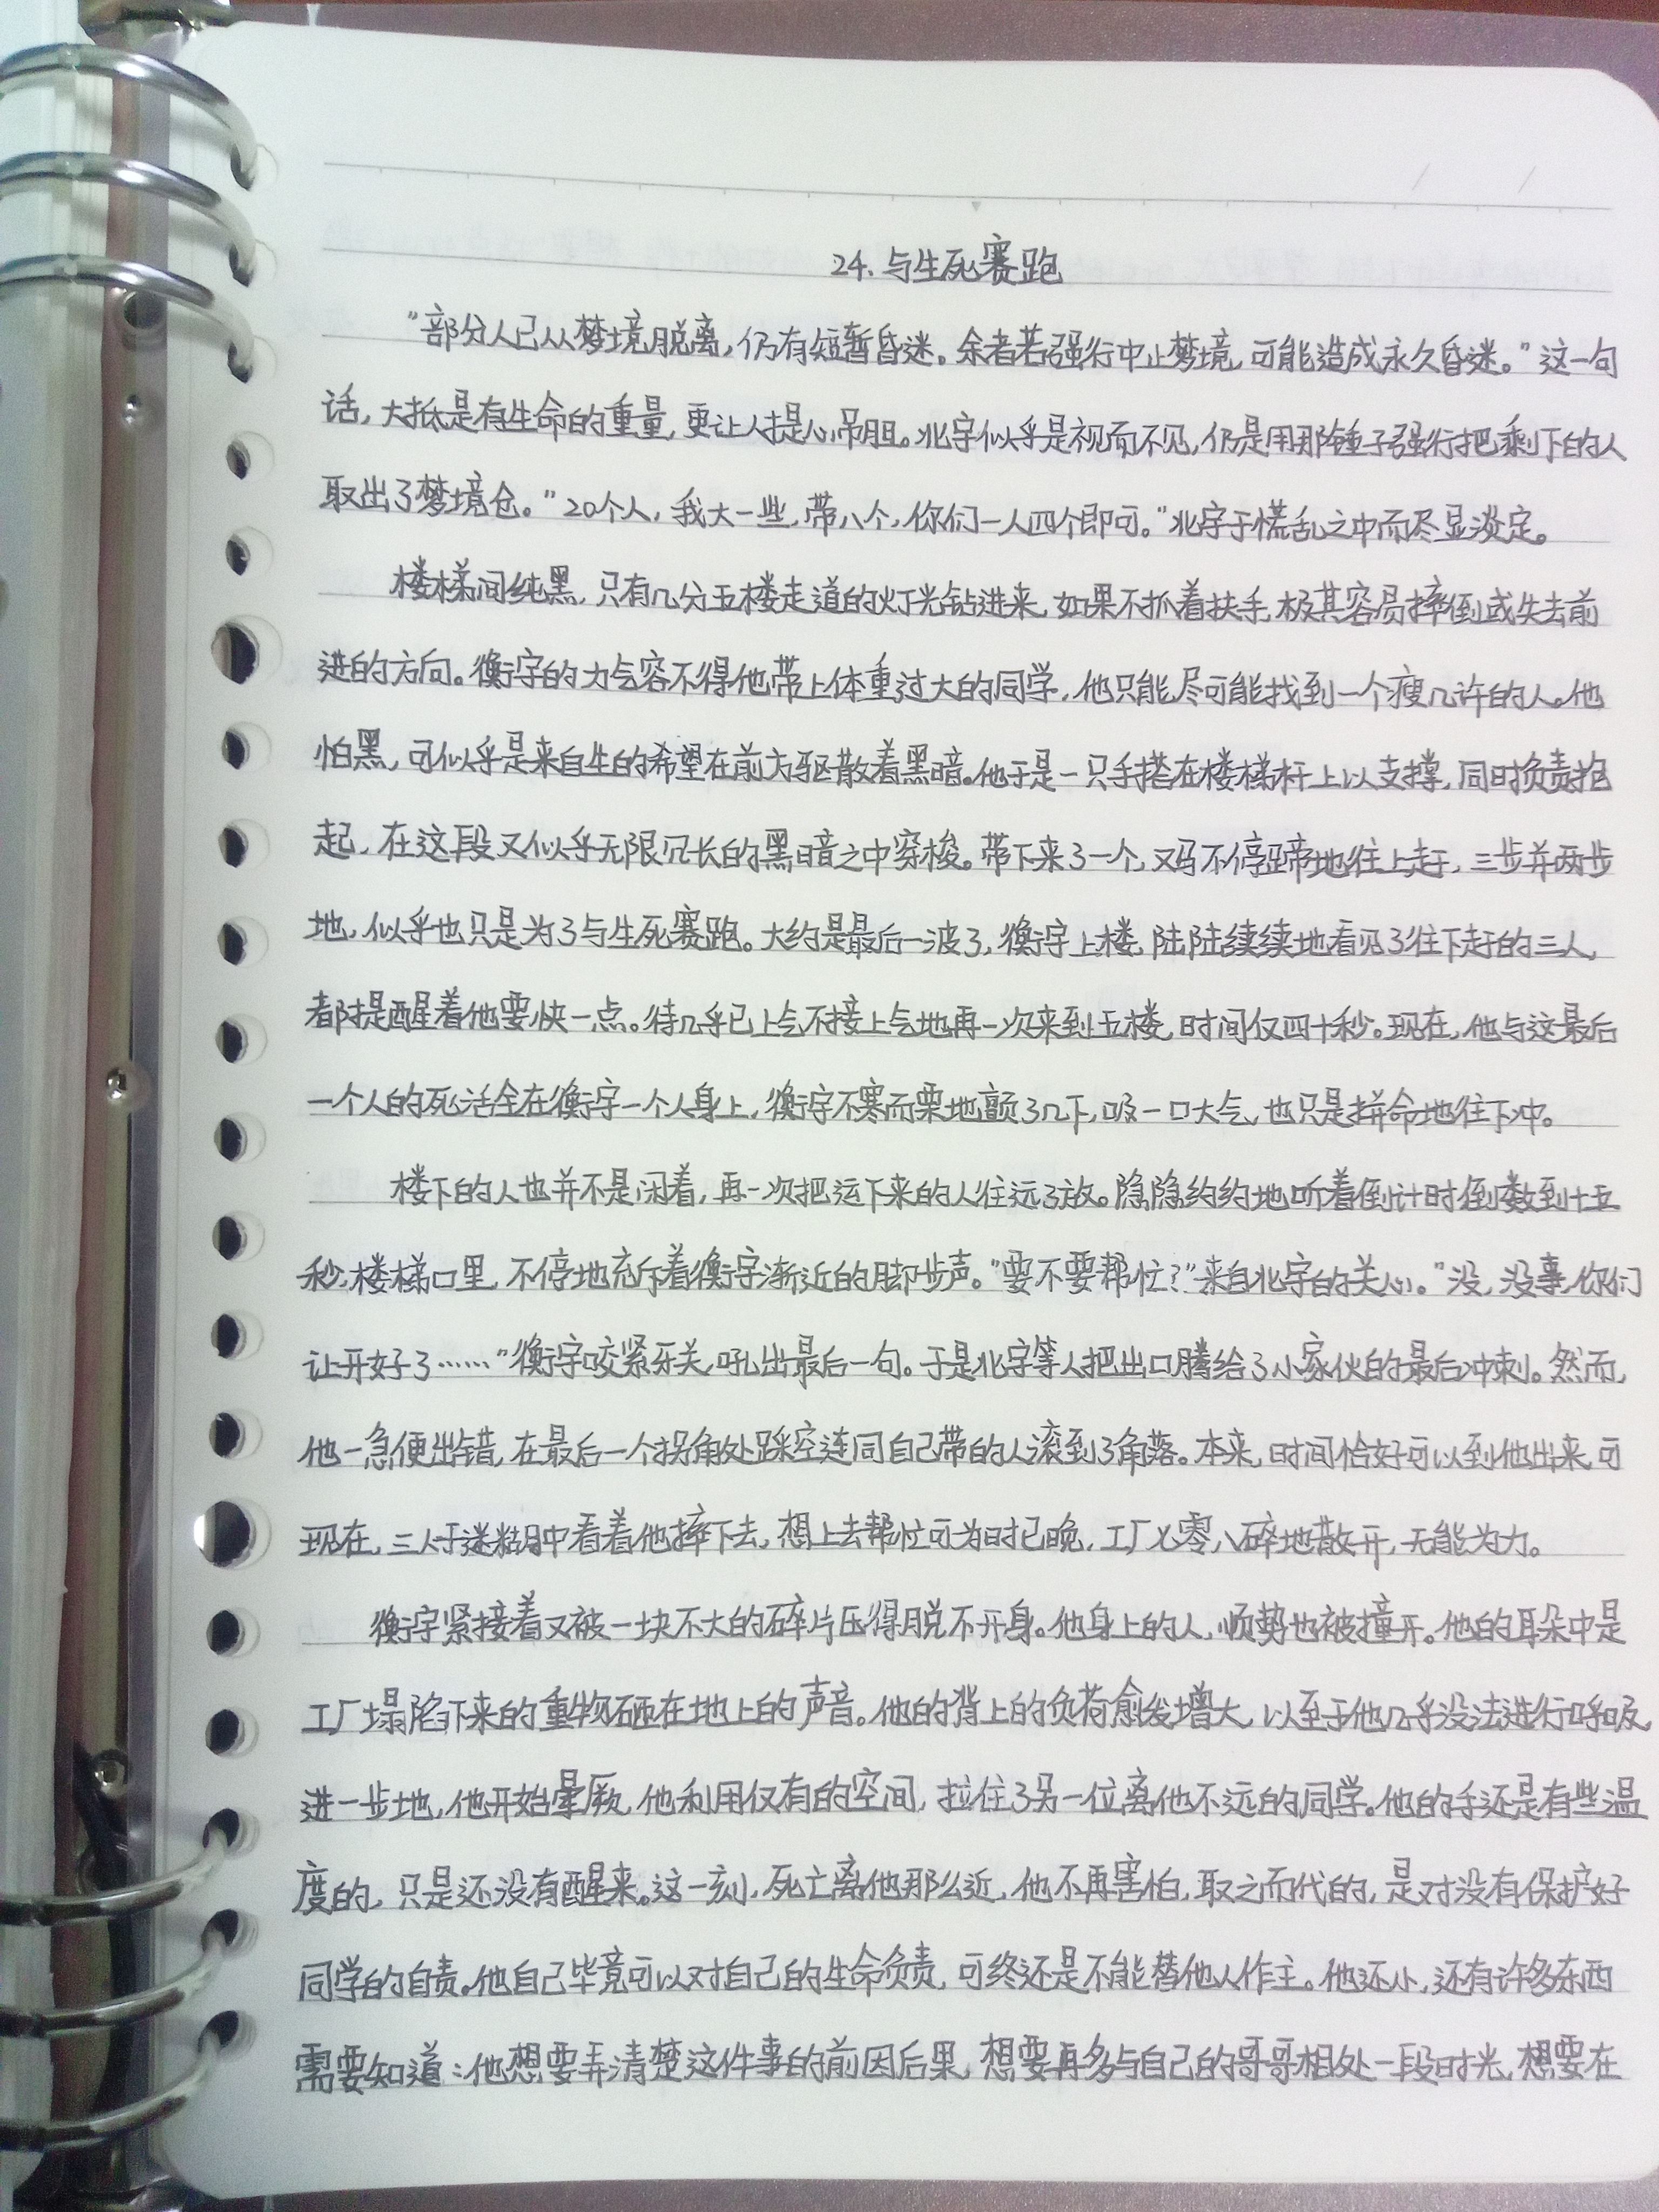 24. 与生死赛跑
"部分人已从梦境脱离,仍有短暂昏迷。余者若强行中止梦境,可能造成永久昏迷。"这一句
话,大抵是有生命的重量,更让人提心吊胆。北宇似乎是视而不见,仍是用那锤子强行把剩下的人
取出了梦境仓。"20个人,我大一些,带八个,你们一人四个即可。"北宇于慌乱之中而尽显淡定。
楼梯间纯黑,只有几分五楼走道的灯光钻进来,如果不抓着扶手,极其容易摔倒或失去前
进的方向。衡宇的力气容不得他带上体重过大的同学,他只能尽可能找到一个瘦几许的人。他
怕黑,可似乎是来自生的希望在前方驱散着黑暗。他于是一只手搭在楼梯杆上以支撑,同时负责抱
起,在这段又似乎无限冗长的黑暗之中穿梭。带下来了一个,又马不停蹄地往上赶,三步并两步
地,似乎也只是为了与生死赛跑。大约是最后一波了,衡宇上楼,陆陆续续地看见了往下赶的三人,
都提醒着他要快一点。待几乎已上气不接上气地再一次来到五楼,时间仅四十秒。现在,他与这最后
一个人的死活全在衡宇一个人身上,衡宇不寒而栗地颤了几下,吸一口大气,也只是拼命地往下冲。
楼下的人也并不是闲着,再一次把运下来的人往远了放。隐隐约约地听着倒计时倒数到十五
秒,楼梯口里,不停地充斥着衡宇渐近的脚步声。"要不要帮忙?"来自北宇的关心。"没,没事,你们
让开好了……"衡宇咬紧牙关,吼出最后一句。于是北宇等人把出口腾给了小家伙的最后冲刺。然而,
他一急便出错,在最后一个拐角处踩空连同自己带的人滚到了角落。本来,时间恰好可以到他出来,可
现在,三人于迷糊中看着他摔下去,想上去帮忙可为时已晚,工厂七零八碎地散开,无能为力。
衡宇紧接着又被一块不大的碎片压得脱不开身。他身上的人,顺势也被撞开。他的耳朵中是
工厂塌陷下来的重物砸在地上的声音。他的背上的负荷愈发增大,以至于他几乎没法进行呼吸,
进一步地,他开始晕厥,他利用仅有的空间,拉住了另一位离他不远的同学。他的手还是有些温
度的,只是还没有醒来。这一刻,死亡离他那么近,他不再害怕,取之而代的,是对没有保护好
同学的自责。他自己毕竟可以对自己的生命负责,可终还是不能替他人作主。他还小,还有许多东西
需要知道:他想要弄清楚这件事的前因后果,想要再多与自己的哥哥相处一段时光,想要在